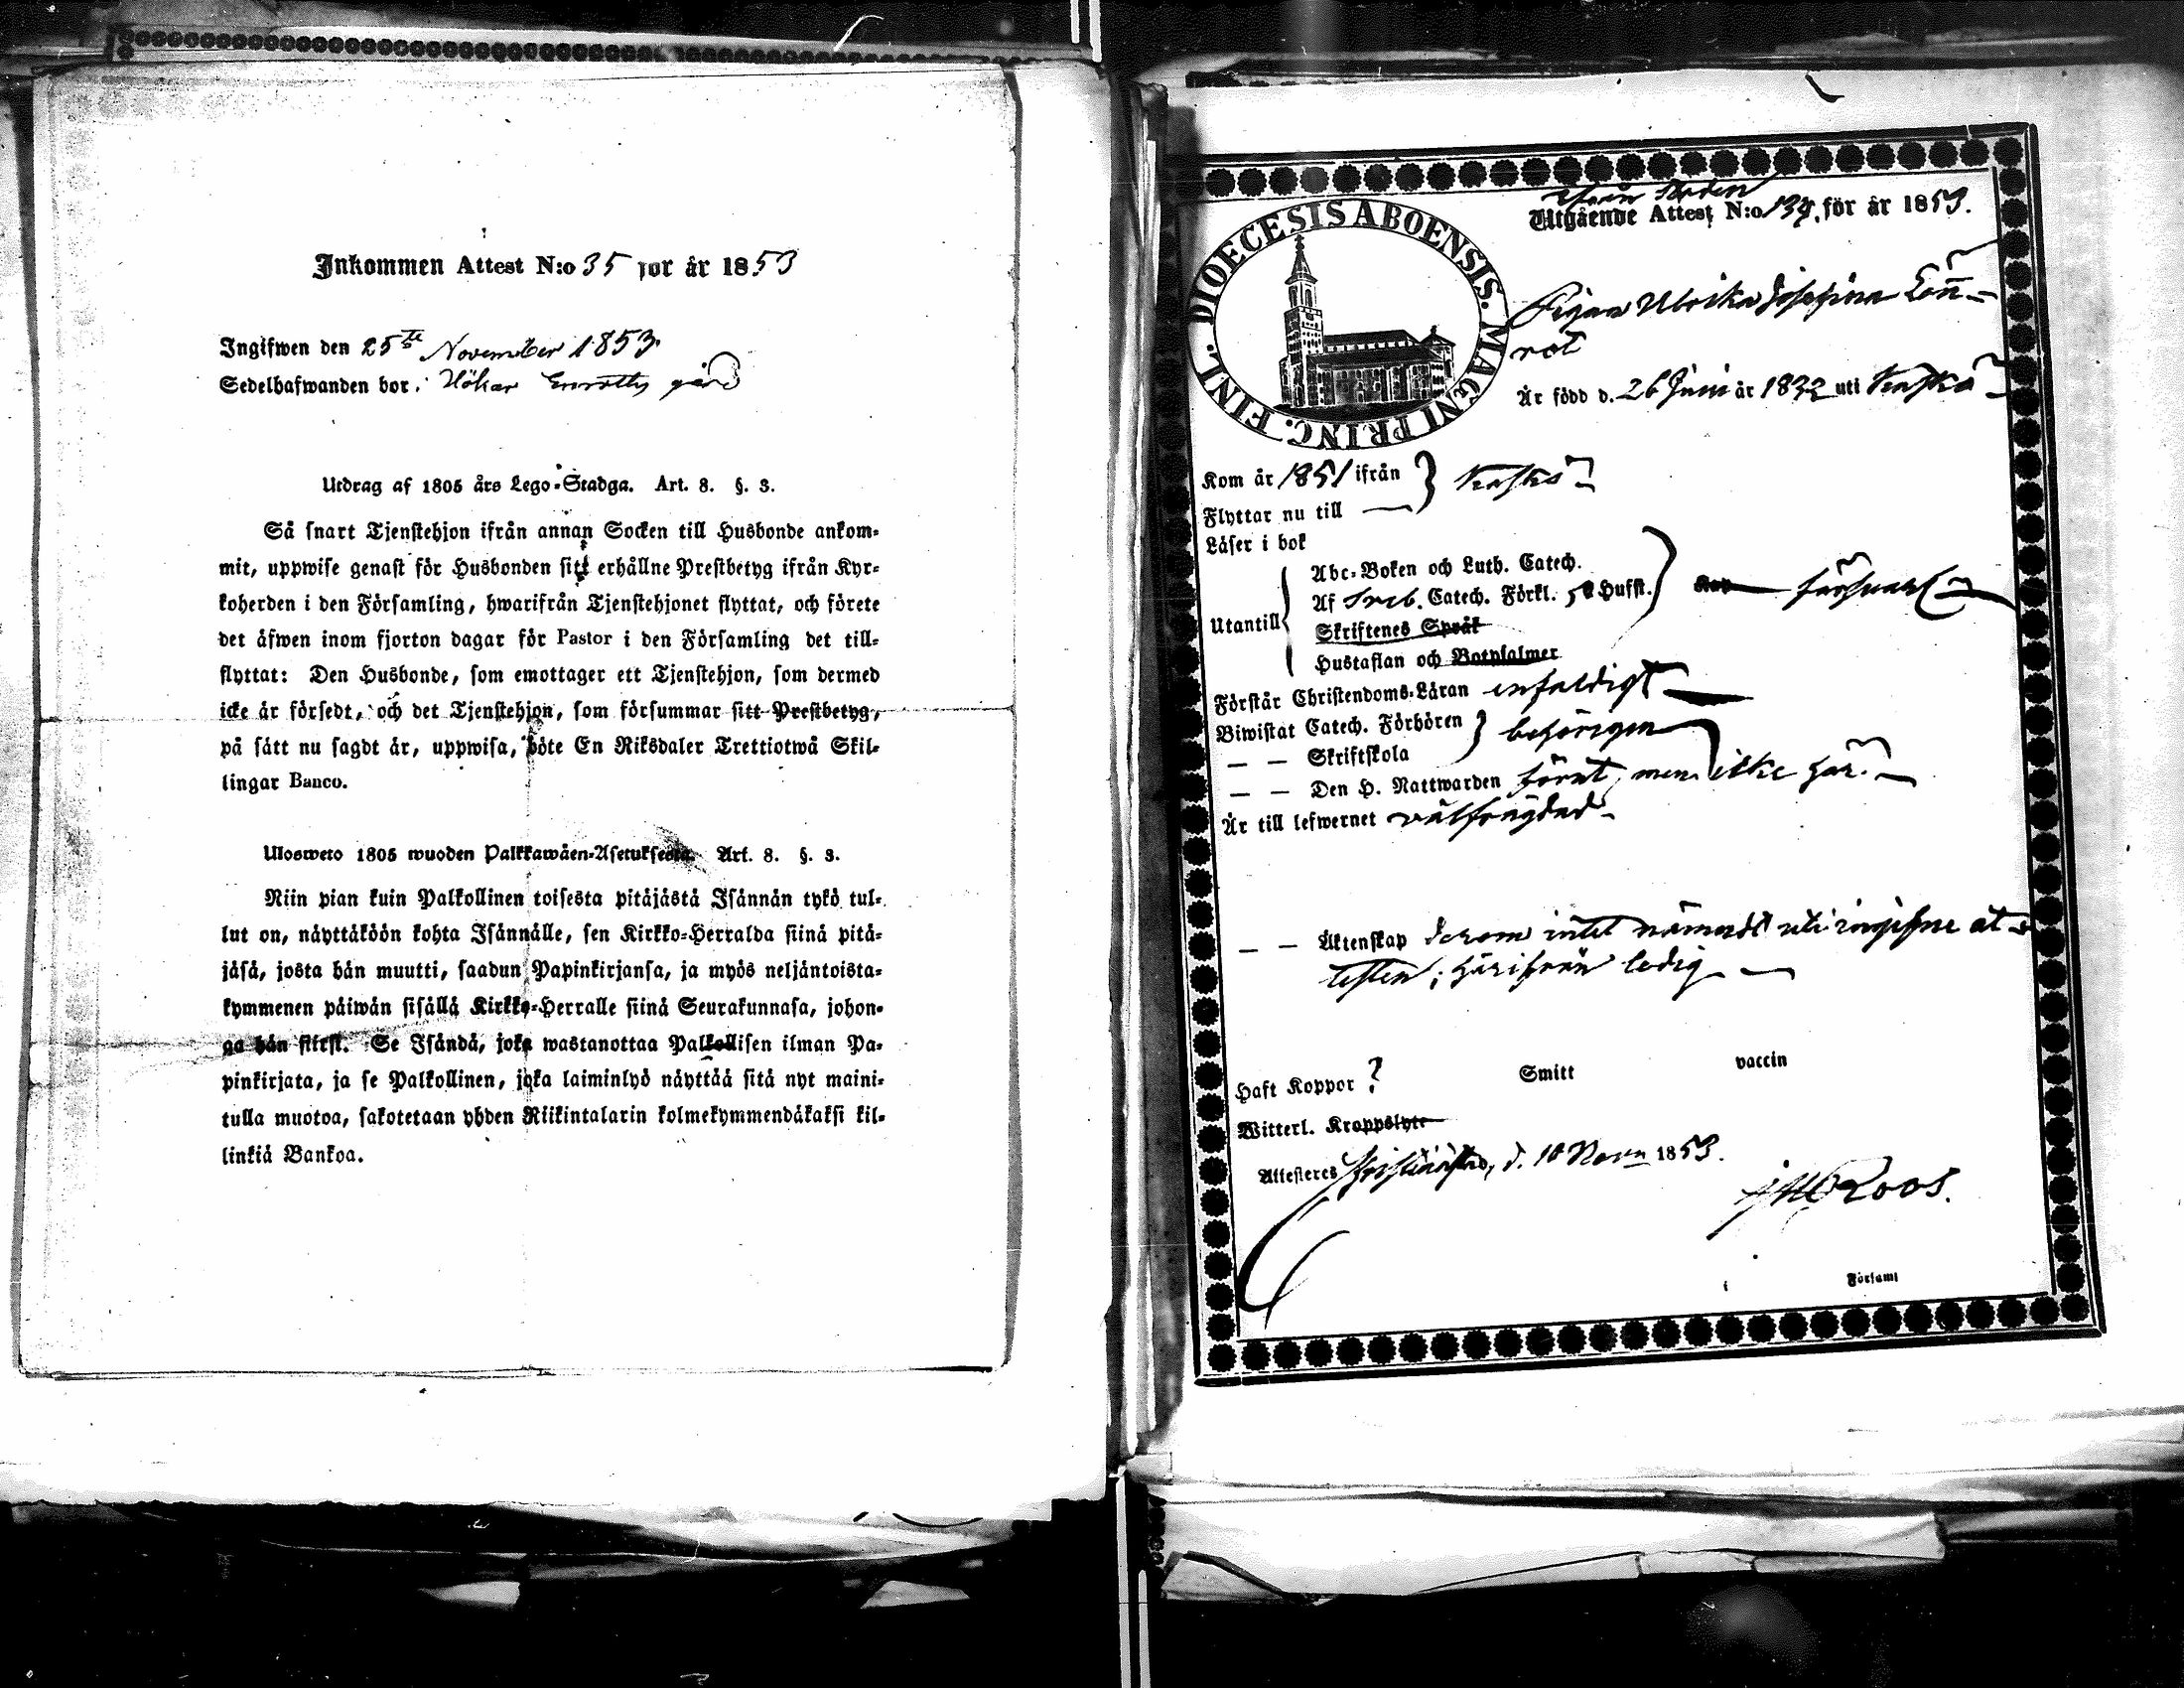 Inkommen Attest N:o 35 för år 1853
Ingifwen den 25te November 1853
Sedelhafwanden bor. Hökar Enroths gård
Utdrag af 1805 års Lego-Stadga. Art. 8. §. 3.
Så snart Tjenstehjon ifrån annan Socken till Husbonde ankom-
mit, uppwise genast för Husbonden sitt erhållne Prestbetyg ifrån Kyr-
koherden i den Församling, hwarifrån Tjenstehjonet flyttat, och förete
det äfwen inom fjorton dagar för Pastor i den Församling det till-
flyttat: Den Husbonde, som emottager ett Tjenstehjon, som dermed
icke är försedt, och det Tjenstehjon, som försummar sitt Prestbetyg,
på sätt nu sagdt är, uppwisa, böte En Riksdaler Trettiotwå Skil-
lingar Banco.
Ulosweto 1805 wuoden Palkkawäen-Asetuksesta. Art. 8. §. 3.
Niin pian kuin Palkollinen toisesta pitäjästä Isännän tykö tul-
lut on, näyttäköön kohta Isännälle, sen Kirkko-Herralda siinä pitä-
jäsä, josta hän muutti, saadun Papinkirjansa, ja myös neljäntoista-
kymmenen päiwän sisällä Kirkko-Herralle siinä Seurakunnasa, johon-
ga hän siirsi. Se Isändä, joka wastanottaa Palkollisen ilman Pa-
pinkirjata, ja se Palkollinen, joka laiminlyö näyttää sitä nyt maini-
tulla muotoa, sakotetaan yhden Riikintalarin kolmekymmendäkaksi kil-
linkiä Bankoa.
DIOECESIS ABOENSIS. MAGNI PRINC. FINL.
Från Staden
Utgående Attest N:o 134, för år 1853.
Pigan Ulrika Josefina Lönn-
rot
Är född d. 26 Juni år 1832 uti Kaskö
Kom år 1851 ifrån } Kaskö
Flyttar nu till —
Läser i bok
Abc-Boken och Luth. Catech.
Af Sveb. Catech. Förkl. 5 Hufst.
Utantill Skriftenes Språk försvarl.
Hustaflan och Botpsalmer
Förstår Christendoms-Läran enfaldigt
Biwistat Catech. Förhören } behörigen
— — Skriftskola
— — Den H. Nattwarden förut, men icke här.
Är till lefwernet välfrägdad
— — Äktenskap derom intet nämndt uti ingifne at-
testen; härifrån ledig
Haft Koppor ? Smitt vaccin
Witterl. Kroppslyte
Attesteras Kristinestad, d. 10 Novr 1853.
Roos.
Församl